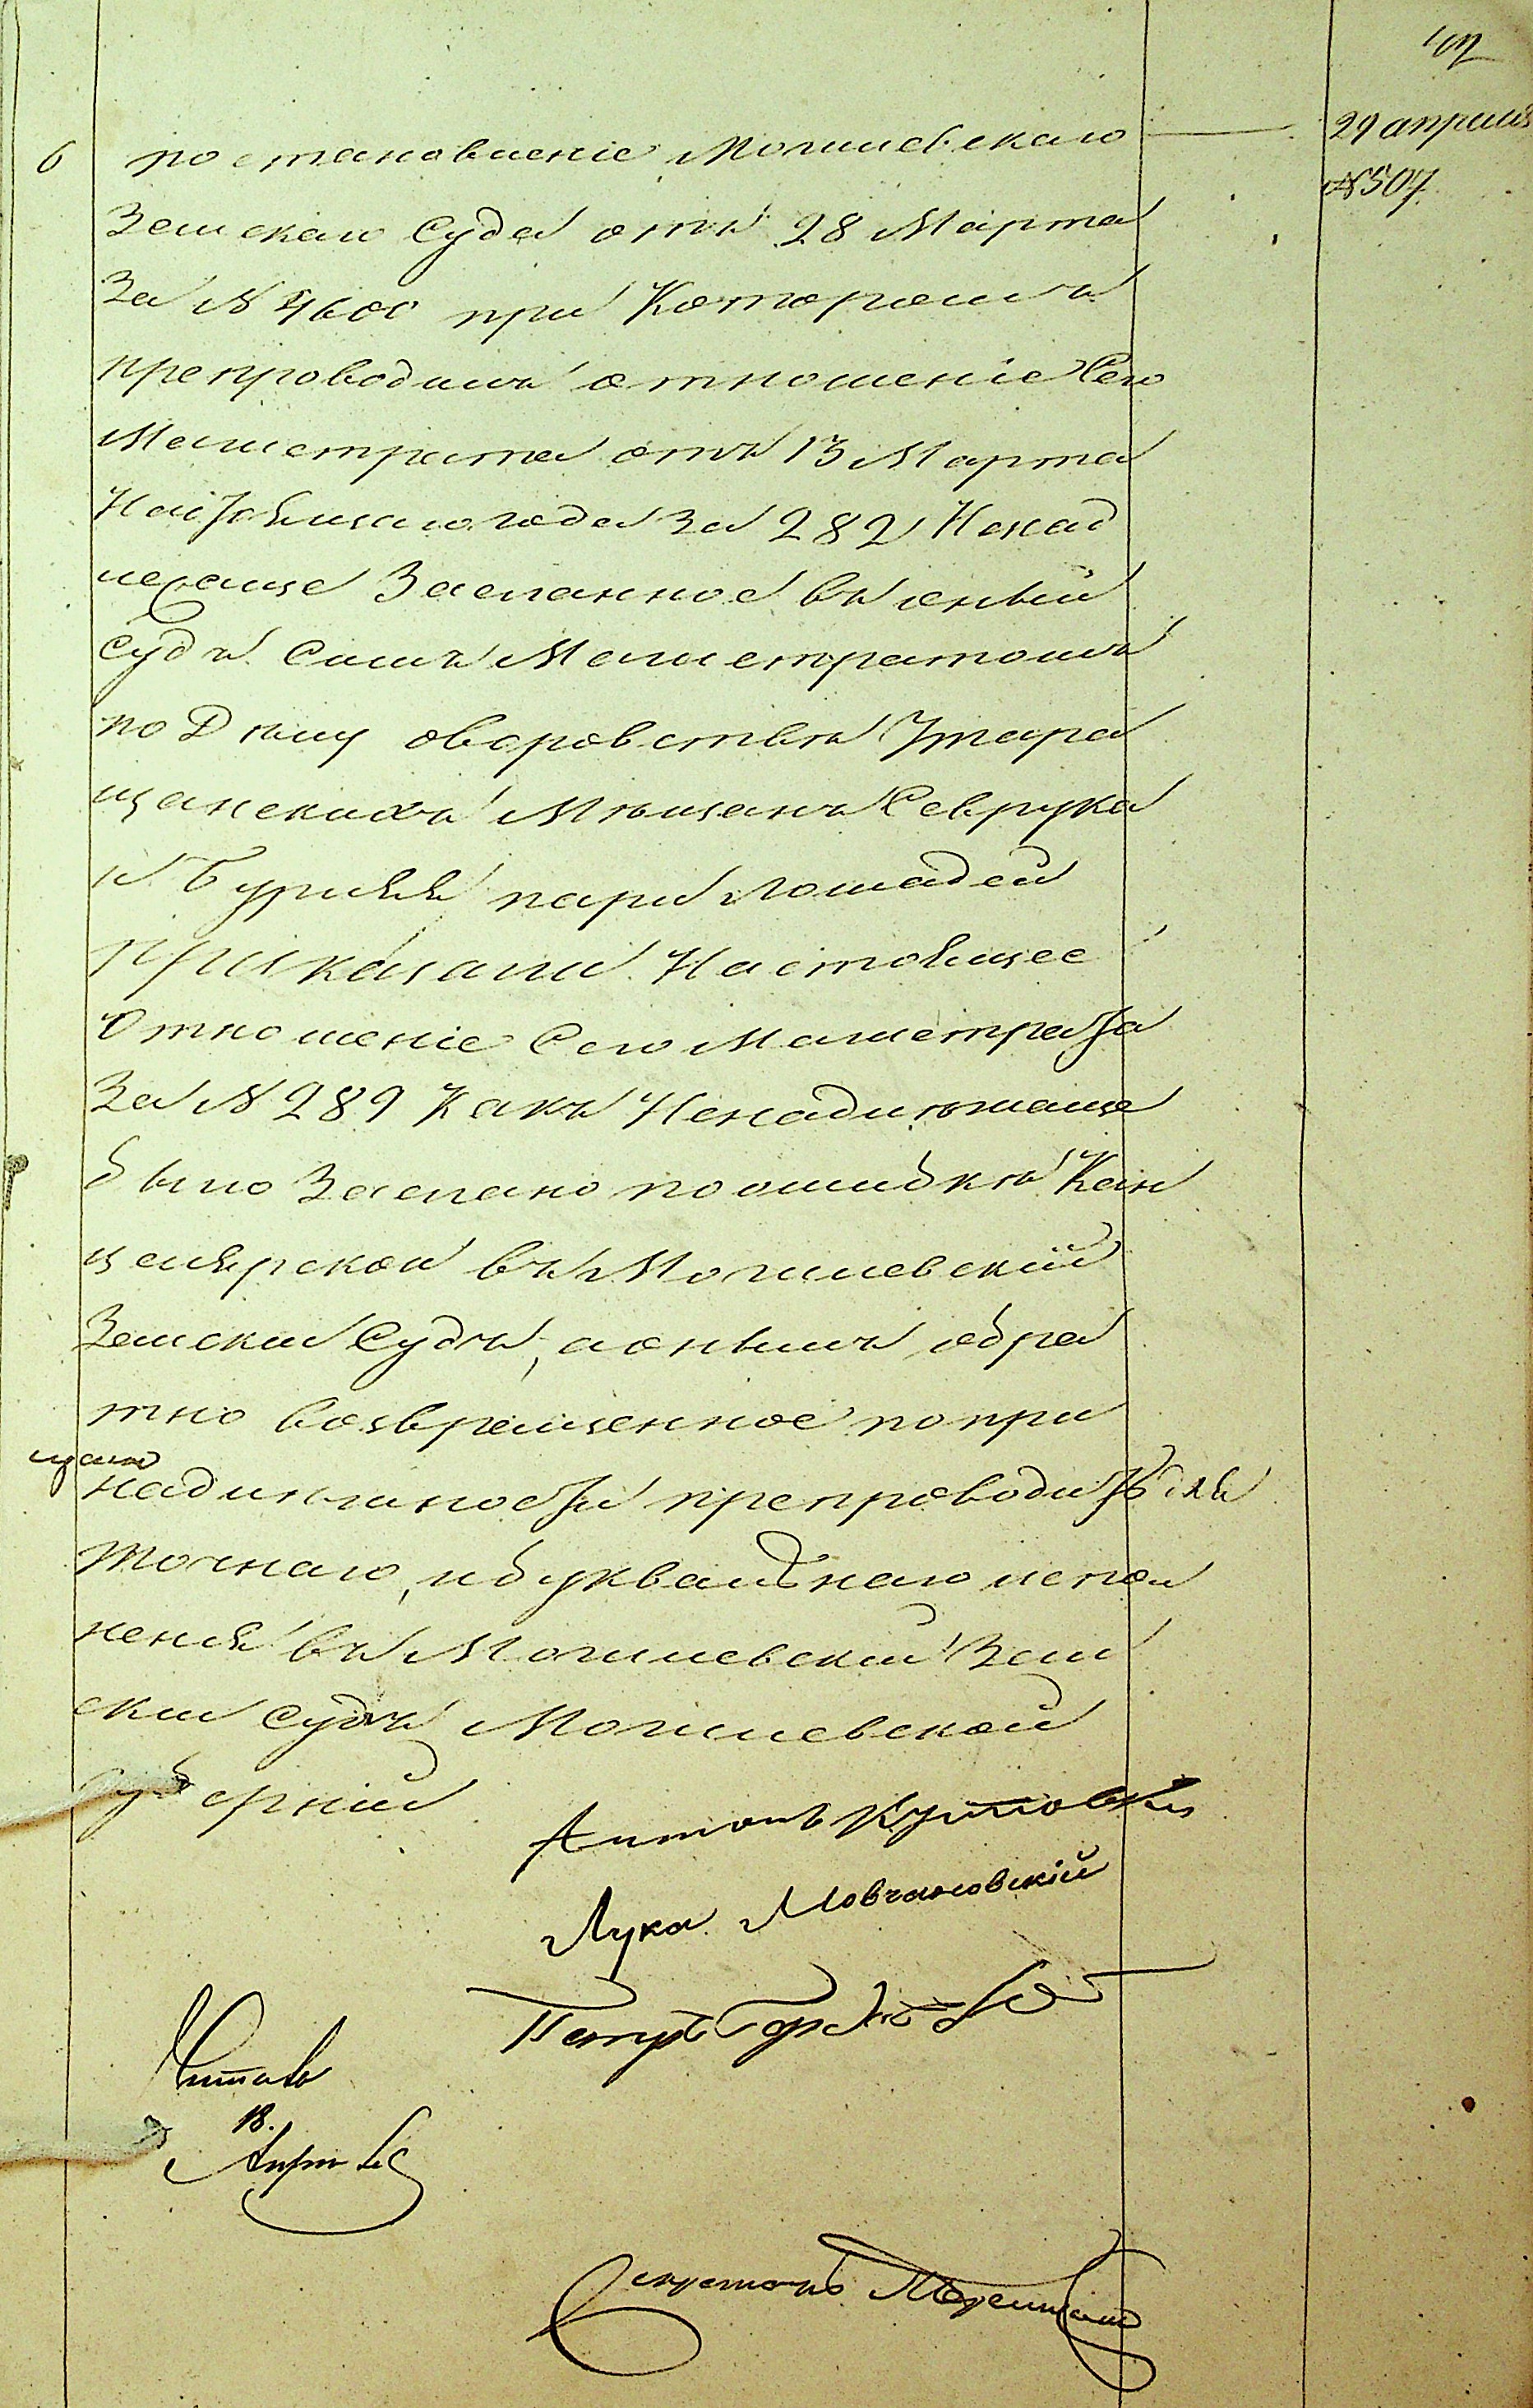 29 апреля
№507
6 постановленіе Могилевскаго
Земскаго Суда отъ 28 Марта
За № 4600 при Которомъ
препроводилъ отношеніе Сего
Магистрата отъ 13 Марта
Настоящаго года За 282 Ненад
лежаще Засланное въ оный
Судъ Симъ Магистратомъ
по Делу оворовствѣ Утара
щанскихъ Мѣщанъ Севрука
и Бурляя пари лошадей
Приказали Настоящее
Отношеніе Сего Магистрата
За № 282 Какъ Ненадлѣжаще
было Заслано поошибкѣ Кан
целярской въ Могилевскій
Земски Судъ, а онымъ обра
тно возвращенное попри
надлѣжности препроводить для
точнаго, ибуквальнаго испол
ненія въ Могилевский Зем
ски Судъ Могилевской
губерніи
Антонъ
Лука Мовчановскій
Петръ
Читалъ
18.
Секретарь